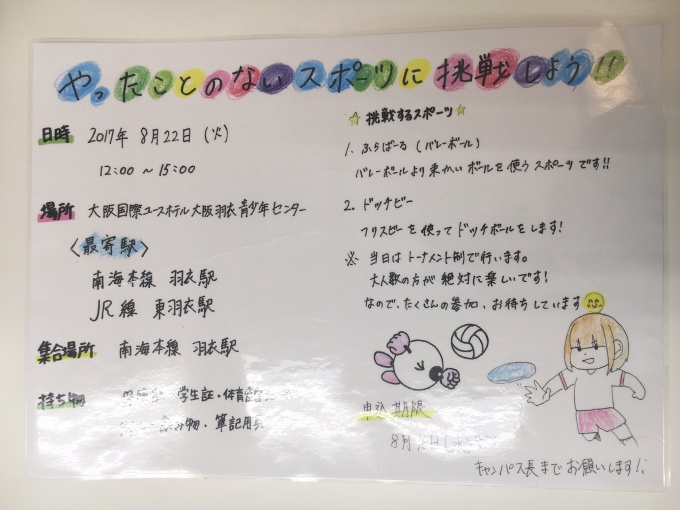 やったことのないスポーツに挑戦しよう!!
日時 2017年 8月22日 (火)
12:00 ~ 15:00
場所 大阪国際ユースホテル大阪羽衣青少年センター
〈最寄駅〉
南海本線 羽衣駅
JR線 東羽衣駅
集合場所 南海本線 羽衣駅
持ち物 学生証・体育館
飲み物・筆記用具
☆挑戦するスポーツ☆
1. ふらばーる (バレーボール)
バレーボールより柔かいボールを使うスポーツです!!
2. ドッヂビー
フリスビーを使ってドッチボールをします!
※ 当日はトーナメント制で行います。
大人数の方が絶対に楽しいです!
なので、たくさんの参加、お待ちしています
申込期限
8月
キャンパス長までお願いします!!